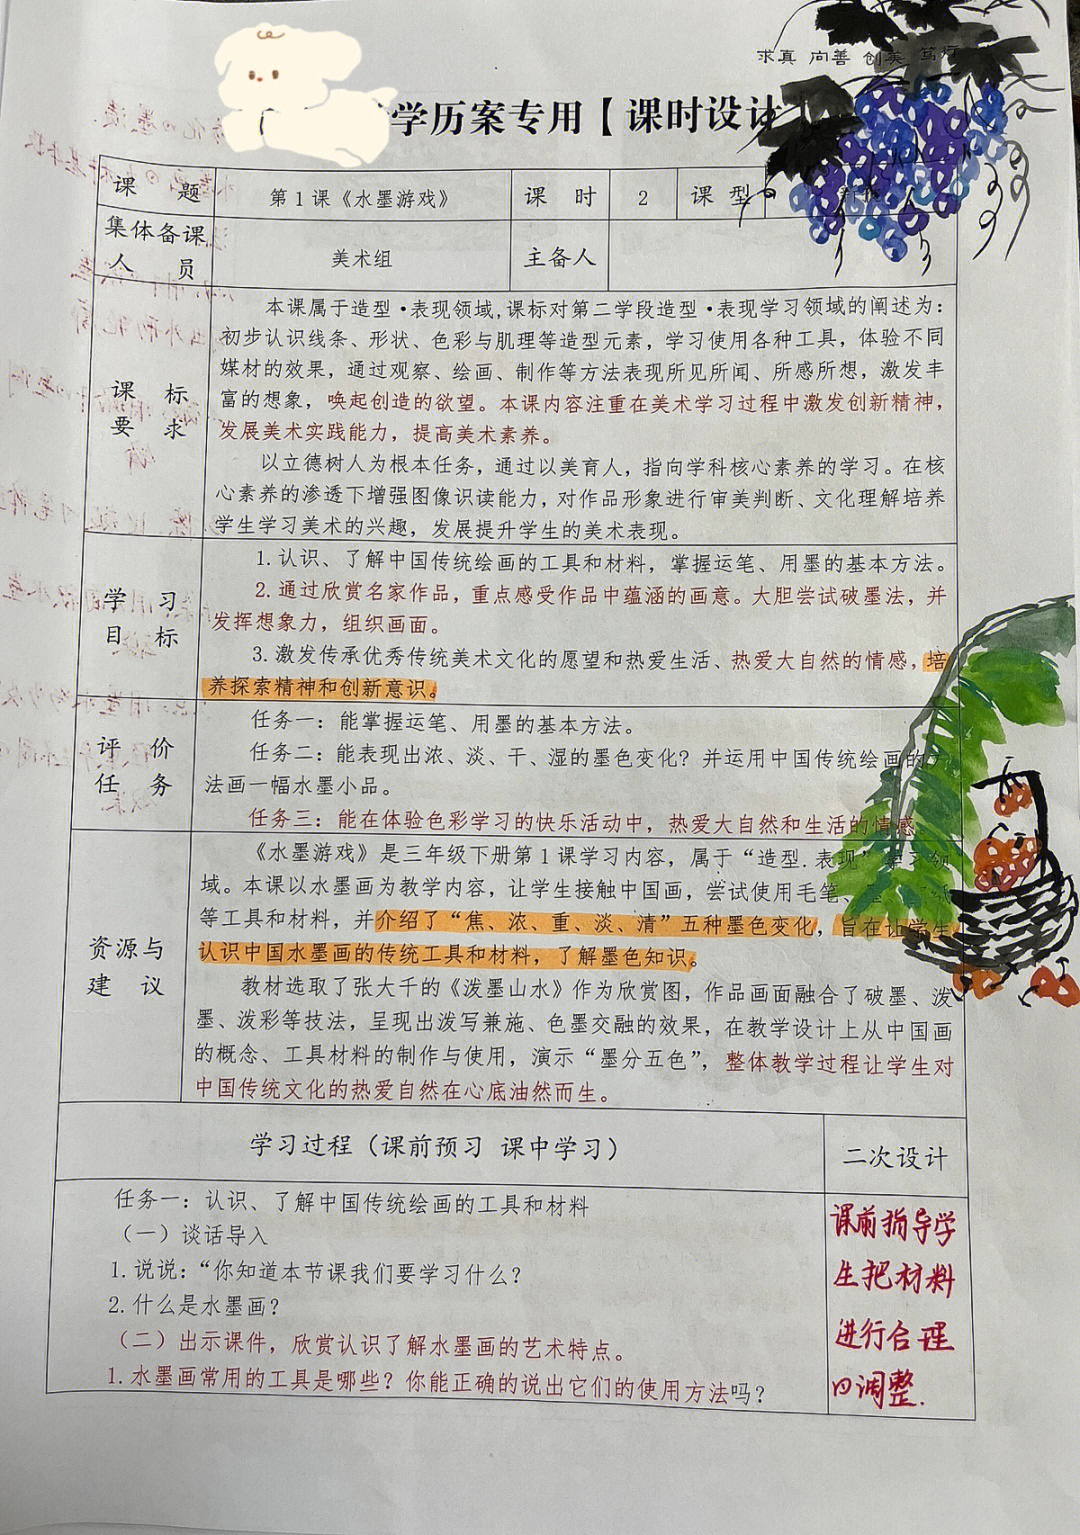 求真 向善 创美 笃行
学历案专用【课时设计
课 题
第1课《水墨游戏》
课 时
2
课 型
集体备课
人 员
美术组
主备人
课 标
要 求
本课属于造型·表现领域,课标对第二学段造型·表现学习领域的阐述为：
初步认识线条、形状、色彩与肌理等造型元素，学习使用各种工具，体验不同
媒材的效果，通过观察、绘画、制作等方法表现所见所闻、所感所想，激发丰
富的想象，唤起创造的欲望。本课内容注重在美术学习过程中激发创新精神，
发展美术实践能力，提高美术素养。
以立德树人为根本任务，通过以美育人，指向学科核心素养的学习。在核
心素养的渗透下增强图像识读能力，对作品形象进行审美判断、文化理解培养
学生学习美术的兴趣，发展提升学生的美术表现。
学 习
目 标
1.认识、了解中国传统绘画的工具和材料，掌握运笔、用墨的基本方法。
2.通过欣赏名家作品，重点感受作品中蕴涵的画意。大胆尝试破墨法，并
发挥想象力，组织画面。
3.激发传承优秀传统美术文化的愿望和热爱生活、热爱大自然的情感，培
养探索精神和创新意识。
评 价
任 务
任务一：能掌握运笔、用墨的基本方法。
任务二：能表现出浓、淡、干、湿的墨色变化？并运用中国传统绘画的
法画一幅水墨小品。
任务三：能在体验色彩学习的快乐活动中，热爱大自然和生活的情感
资源与
建 议
《水墨游戏》是三年级下册第1课学习内容，属于“造型.表现”学习领
域。本课以水墨画为教学内容，让学生接触中国画，尝试使用毛笔、
等工具和材料，并介绍了“焦、浓、重、淡、清”五种墨色变化，旨在让学生
认识中国水墨画的传统工具和材料，了解墨色知识。
教材选取了张大千的《泼墨山水》作为欣赏图，作品画面融合了破墨、泼
墨、泼彩等技法，呈现出泼写兼施、色墨交融的效果，在教学设计上从中国画
的概念、工具材料的制作与使用，演示“墨分五色”，整体教学过程让学生对
中国传统文化的热爱自然在心底油然而生。
学习过程（课前预习 课中学习）
二次设计
任务一：认识、了解中国传统绘画的工具和材料
（一）谈话导入
1.说说：“你知道本节课我们要学习什么？
2.什么是水墨画？
（二）出示课件，欣赏认识了解水墨画的艺术特点。
1.水墨画常用的工具是哪些？你能正确的说出它们的使用方法吗？
课前指导学
生把材料
进行合理
的调整.